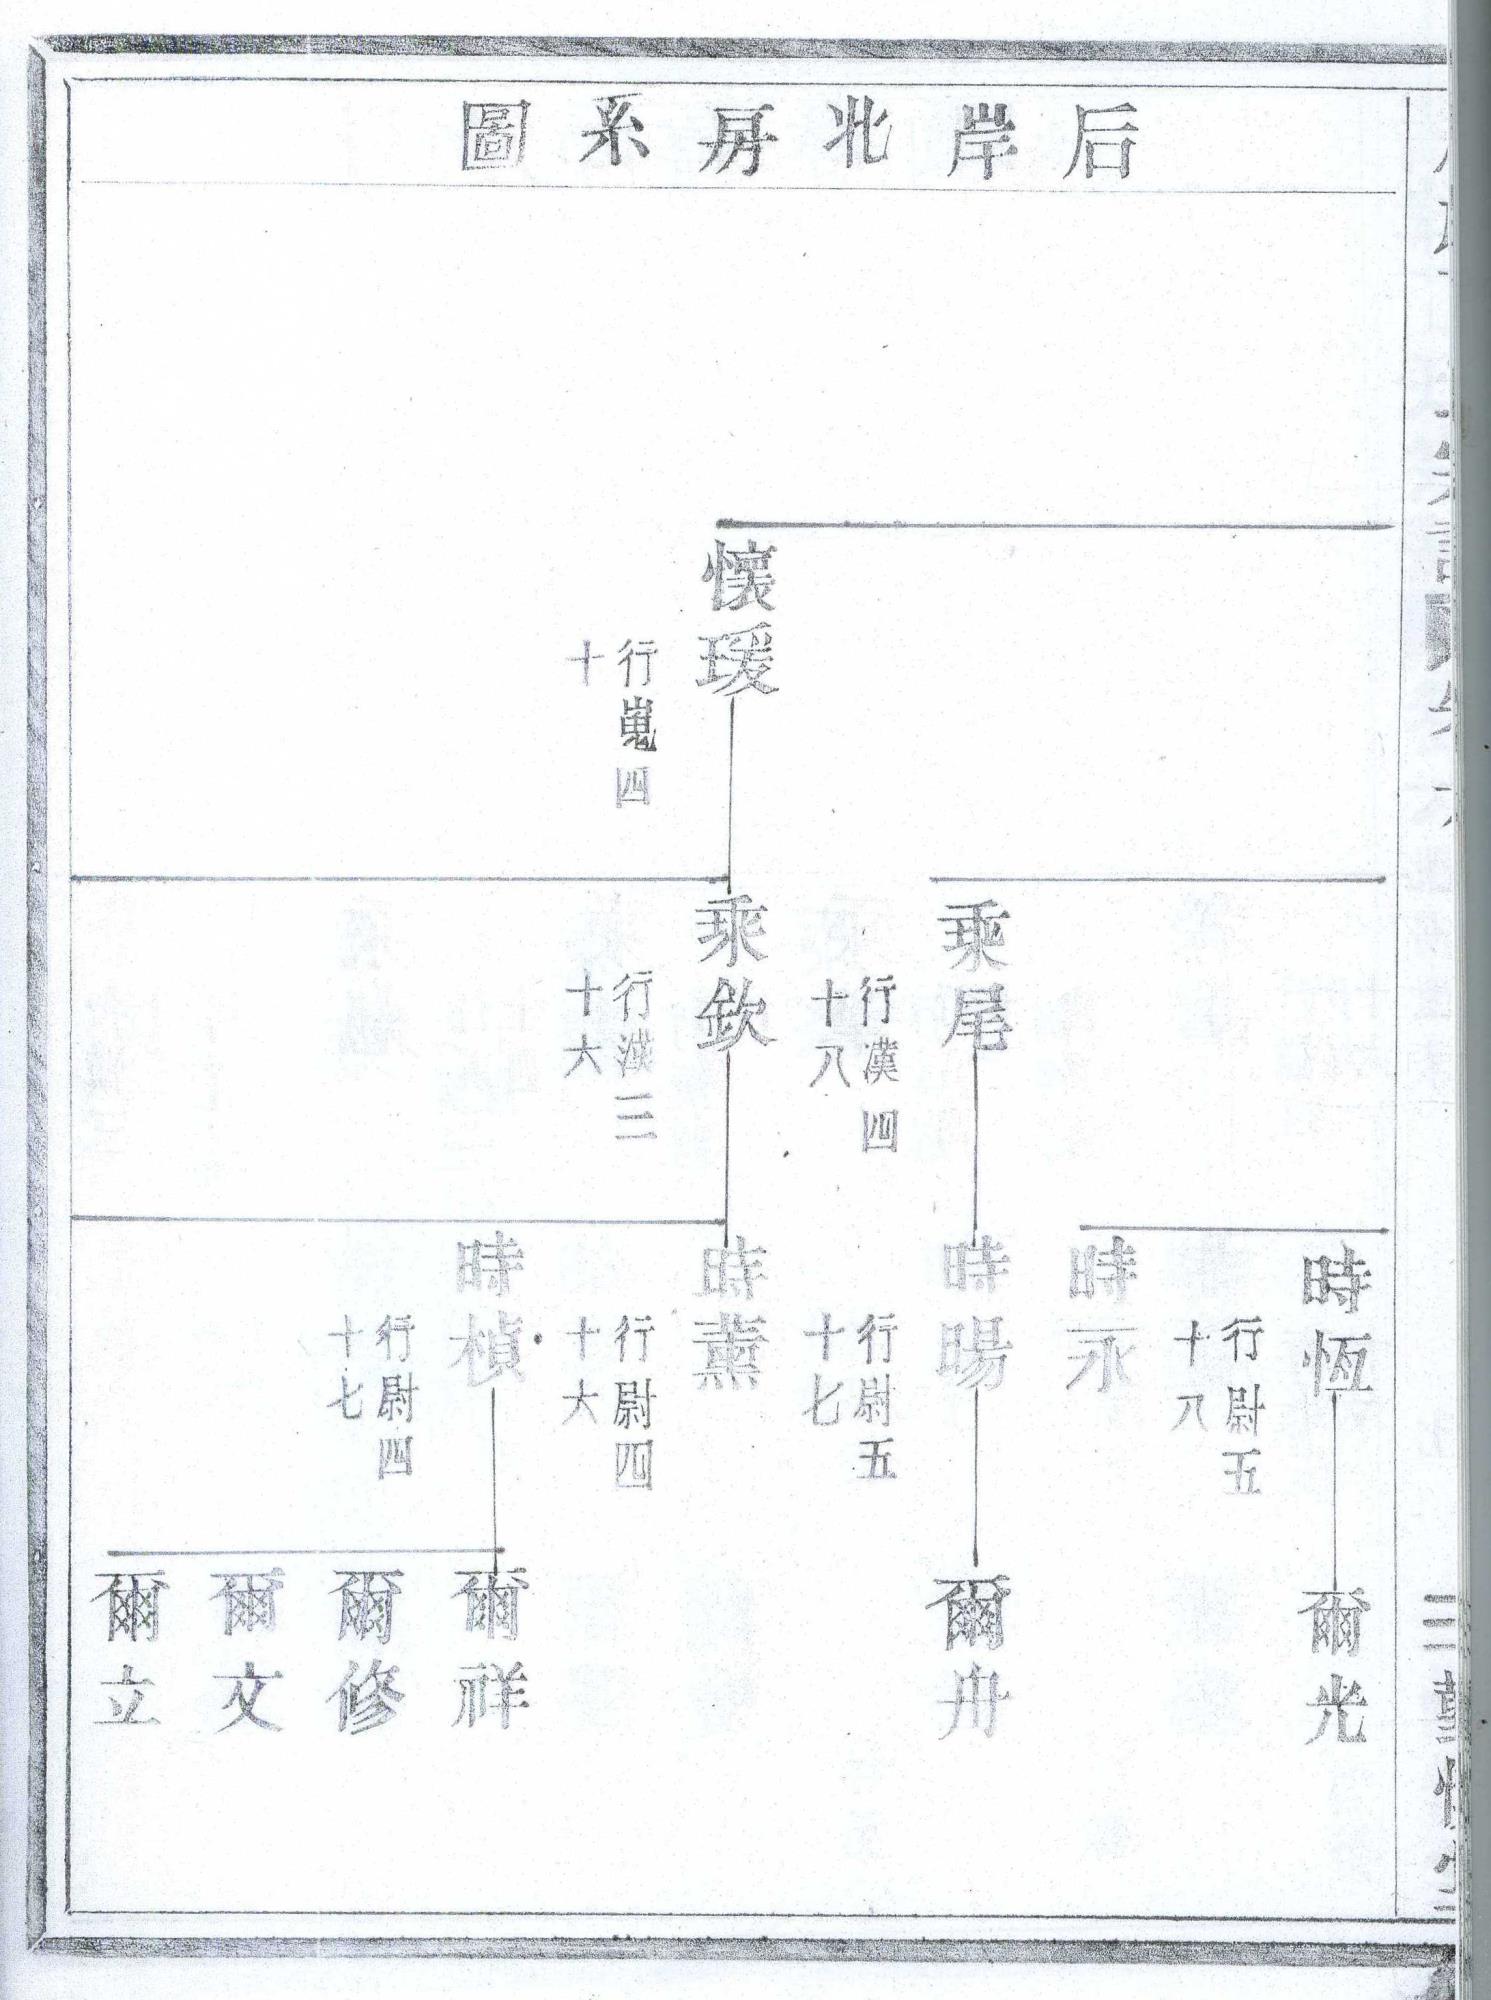 后岸北房系圖
懷瑗
行嵬四
十
乘尾
行漢四
十八
乘欽
行漢三
十六
時恆
行尉五
十八
時永
時暘
行尉五
十七
時薰
行尉四
十六
時楨
行尉四
十七
爾光
爾舟
爾祥
爾修
爾文
爾立